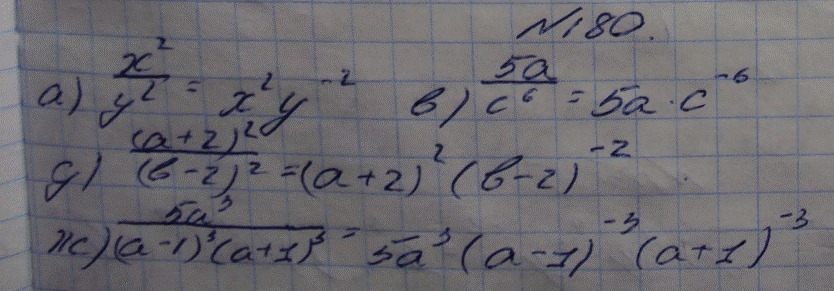 №180.
а) x²/y² = x²y⁻² в) 5a/c⁶ = 5a · c⁻⁶
д) (a+2)²/(в-2)² = (a+2)² (в-2)⁻²
ж) 5a³/(a-1)³(a+1)³ = 5a³ (a-1)⁻³ (a+1)⁻³